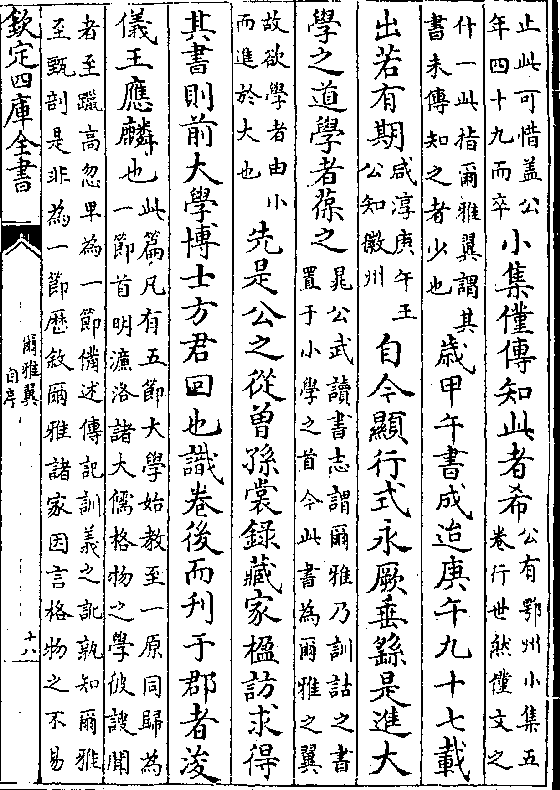 止此可惜盖公
年四十九而卒
小集僅傳知此者希
公有鄂州小集五
卷行世然僅文之
什一此指爾雅翼謂其
書未傳知之者少也
歲甲午書成迨庚午九十七載
出若有期
咸淳庚午王
公知徽州
自今顯行式永厥垂繇是進大
學之道學者葆之
晁公武讀書志謂爾雅乃訓詁之書
置于小學之首今此書為爾雅之翼
故欲學者由小
而進於大也
先是公之從曾孫裳錄藏家楹訪求得
其書則前大學博士方君回也識卷後而刊于郡者浚
儀王應麟也
此篇凡有五節大學始教至一原同歸為
一節首明濂洛諸大儒格物之學彼謏聞
者至躐高忽卑為一節備述傳記訓義之訛孰知爾雅
至甄剖是非為一節歷敘爾雅諸家因言格物之不易
欽定四庫全書
爾雅翼
自序
十八